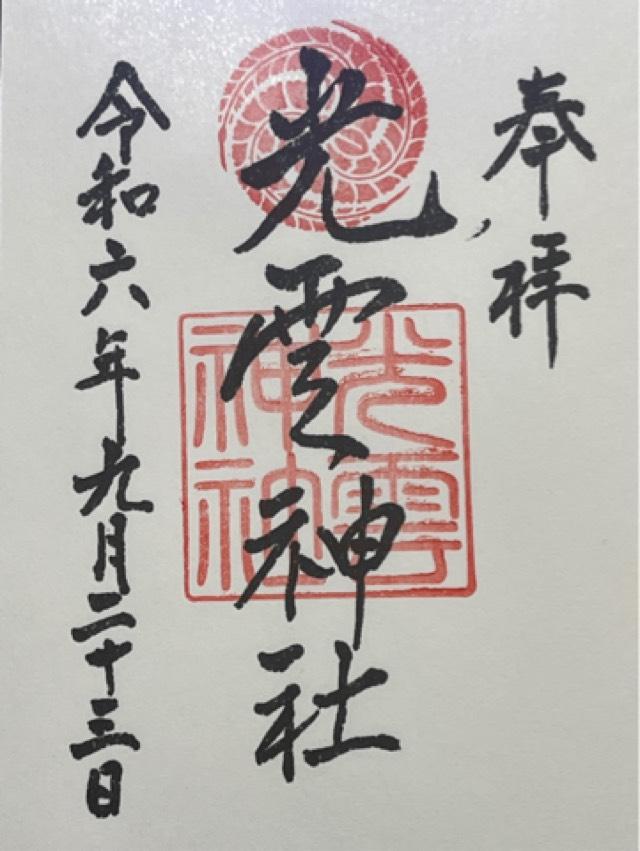 奉拝
光雲神社
光雲神社
令和六年九月二十三日